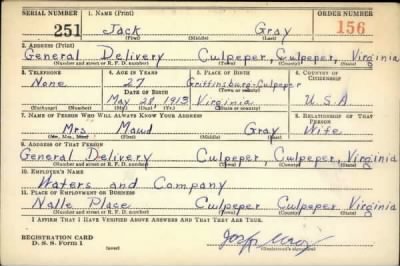 SERIAL NUMBER 1. NAME (Print) ORDER NUMBER
251 Jack Gray 156
(First) (Middle) (Last)
2. ADDRESS (Print)
General Delivery Culpeper, Culpeper, Virginia
(Number and street or R. F. D. number) (Town) (County) (State)
3. TELEPHONE 4. AGE IN YEARS 5. PLACE OF BIRTH 6. COUNTRY OF CITIZENSHIP
None 27 Griffinsburg-Culpeper
DATE OF BIRTH (Town or county)
May 28, 1913 Virginia U.S.A
(Exchange) (Number) (Mo.) (Day) (Yr.) (State or country)
7. NAME OF PERSON WHO WILL ALWAYS KNOW YOUR ADDRESS 8. RELATIONSHIP OF THAT PERSON
Mrs. Maud Gray Wife
(Mr., Mrs., Miss) (First) (Middle) (Last)
9. ADDRESS OF THAT PERSON
General Delivery Culpeper, Culpeper, Virginia
(Number and street or R. F. D. number) (Town) (County) (State)
10. EMPLOYER'S NAME
Waters and Company
11. PLACE OF EMPLOYMENT OR BUSINESS
Nalle Place Culpeper Culpeper Virginia
(Number and street or R. F. D. number) (Town) (County) (State)
I AFFIRM THAT I HAVE VERIFIED ABOVE ANSWERS AND THAT THEY ARE TRUE.
REGISTRATION CARD
D. S. S. Form 1 (over) (Registrant's signature)